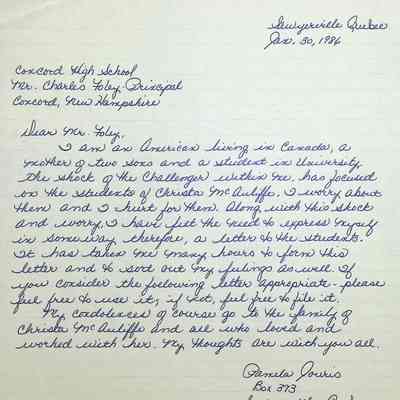 Sawyerville Quebec
Jan. 30, 1986
Concord High School
Mr. Charles Foley-Principal
Concord, New Hampshire
Dear Mr. Foley,
I am an American living in Canada, a
mother of two sons and a student in University.
The shock of the Challenger within me, has focused
on the students of Christa McAuliffe. I worry about
them and I hurt for them. Along with this shock
and worry, I have felt the need to express myself
in some way, therefore, a letter to the students.
It has taken me many hours to form this
letter and to sort out my feelings as well. If
you consider the following letter appropriate - please
feel free to use it; if not, feel free to file it.
My condolences of course go to the family of
Christa McAuliffe and all who loved and
worked with her. My thoughts are with you all.
Pamela
Box 373